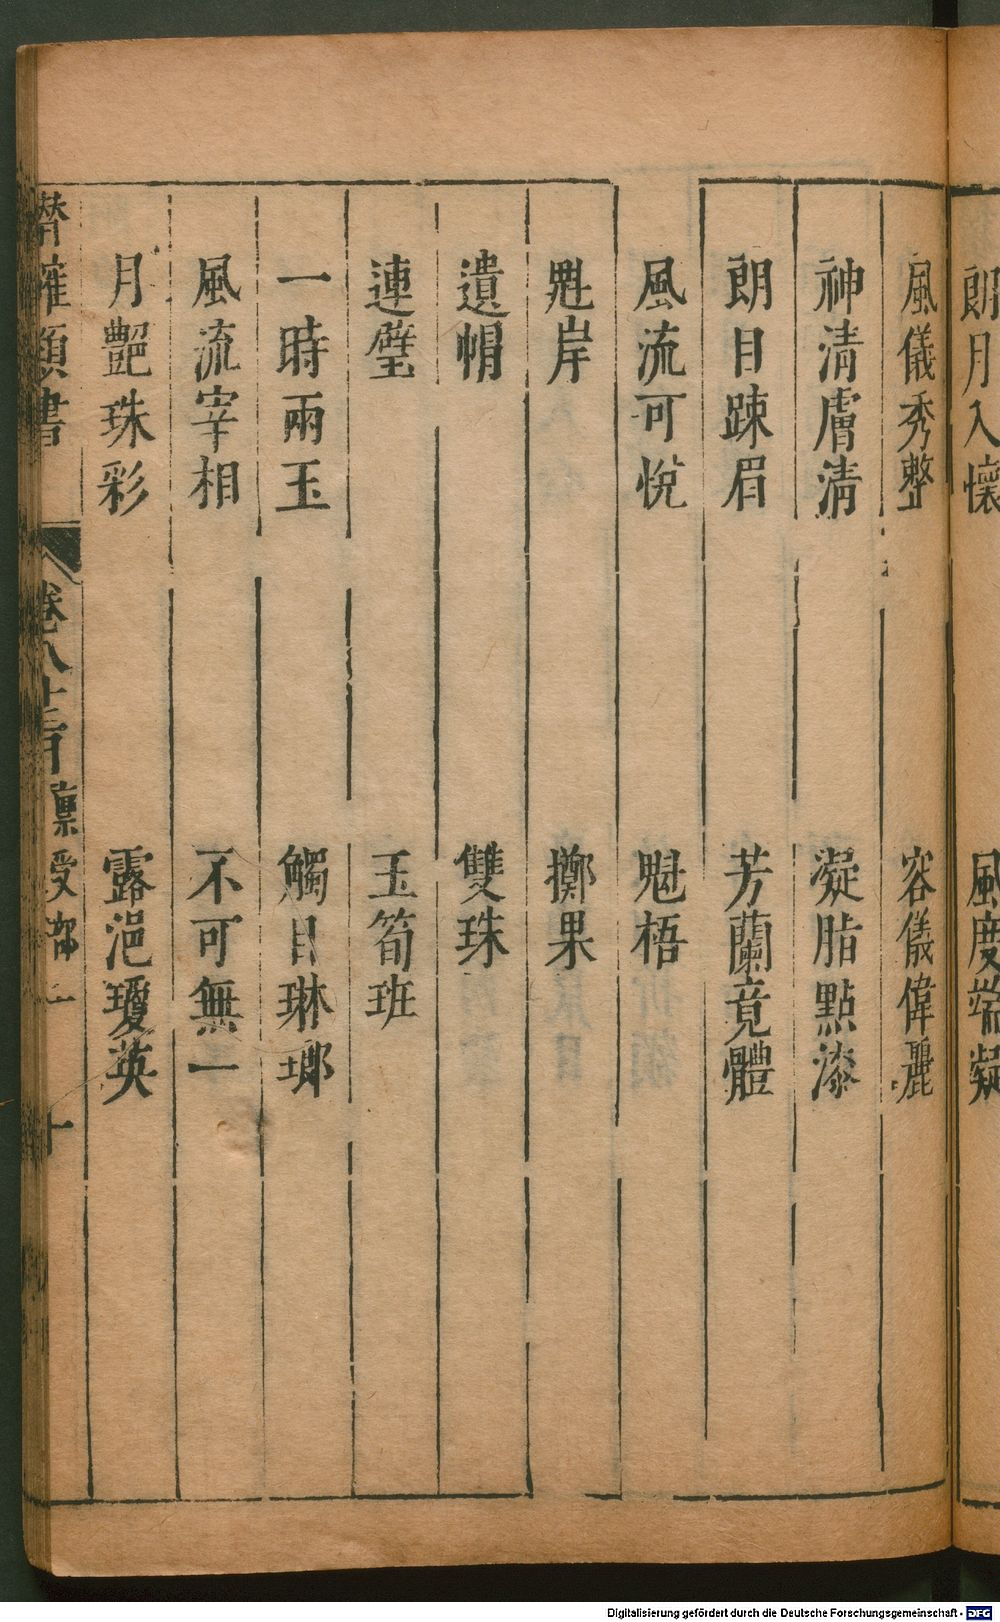 朗月入懷 風度端凝
風儀秀整 容儀偉麗
神清膚清 凝脂點漆
朗目疎眉 芳蘭竟體
風流可悅 魁梧
魁岸 擲果
遺帽 雙珠
連璧 玉筍班
一時兩玉 觸目琳瑯
風流宰相 不可無一
月艷珠彩 露浥瓊英
潛確類書 卷八十 稟受部 十
Digitalisierung gefördert durch die Deutsche Forschungsgemeinschaft - DFG